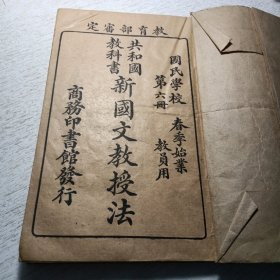 教育部審定
國民學校 春季始業
第六冊 教員用
共和國
教科書
新國文教授法
商務印書館發行